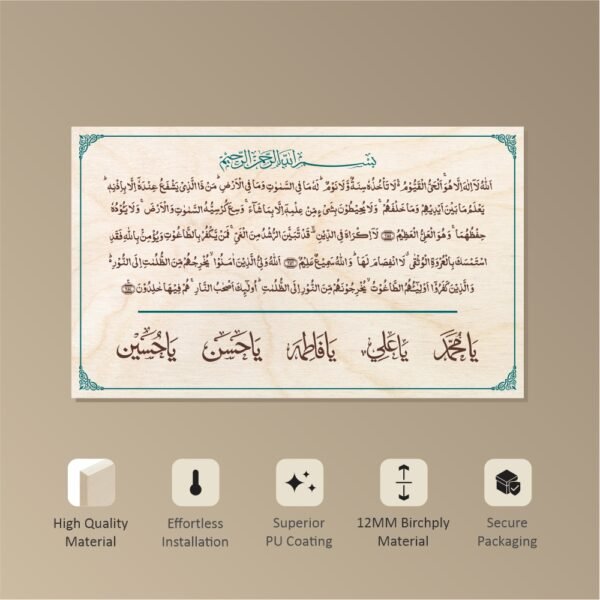 بسم الله الرحمن الرحيم
اَللّٰهُ لَاۤ اِلٰهَ اِلَّا هُوَ ۚ اَلْحَیُّ الْقَیُّوْمُ ۚ لَا تَاْخُذُهٗ سِنَةٌ وَّ لَا نَوْمٌ ؕ لَهٗ مَا فِی السَّمٰوٰتِ وَ مَا فِی الْاَرْضِ ؕ مَنْ ذَا الَّذِیْ یَشْفَعُ عِنْدَهٗۤ اِلَّا بِاِذْنِهٖ ؕ
یَعْلَمُ مَا بَیْنَ اَیْدِیْهِمْ وَ مَا خَلْفَهُمْ ۚ وَ لَا یُحِیْطُوْنَ بِشَیْءٍ مِّنْ عِلْمِهٖۤ اِلَّا بِمَا شَآءَ ۚ وَسِعَ كُرْسِیُّهُ السَّمٰوٰتِ وَ الْاَرْضَ ۚ وَ لَا یَـُٔوْدُهٗ
حِفْظُهُمَا ۚ وَ هُوَ الْعَلِیُّ الْعَظِیْمُ ﴿۲۵۵﴾ لَاۤ اِكْرَاهَ فِی الدِّیْنِ ۙ قَدْ تَّبَیَّنَ الرُّشْدُ مِنَ الْغَیِّ ۚ فَمَنْ یَّكْفُرْ بِالطَّاغُوْتِ وَ یُؤْمِنْۢ بِاللّٰهِ فَقَدِ
اسْتَمْسَكَ بِالْعُرْوَةِ الْوُثْقٰی ۗ لَا انْفِصَامَ لَهَا ؕ وَ اللّٰهُ سَمِیْعٌ عَلِیْمٌ ﴿۲۵۶﴾ اَللّٰهُ وَلِیُّ الَّذِیْنَ اٰمَنُوْا ۙ یُخْرِجُهُمْ مِّنَ الظُّلُمٰتِ اِلَی النُّوْرِ ؕ
وَ الَّذِیْنَ كَفَرُوْۤا اَوْلِیٰٓـُٔهُمُ الطَّاغُوْتُ ۙ یُخْرِجُوْنَهُمْ مِّنَ النُّوْرِ اِلَی الظُّلُمٰتِ ؕ اُولٰٓىِٕكَ اَصْحٰبُ النَّارِ ۚ هُمْ فِیْهَا خٰلِدُوْنَ ﴿۲۵۷﴾
یَا مُحَمَّدْ یَا عَلِي یَا فَاطِمَه یَا حَسَنْ یَا حُسَیْن
High Quality Material
Effortless Installation
Superior PU Coating
12MM Birchply Material
Secure Packaging